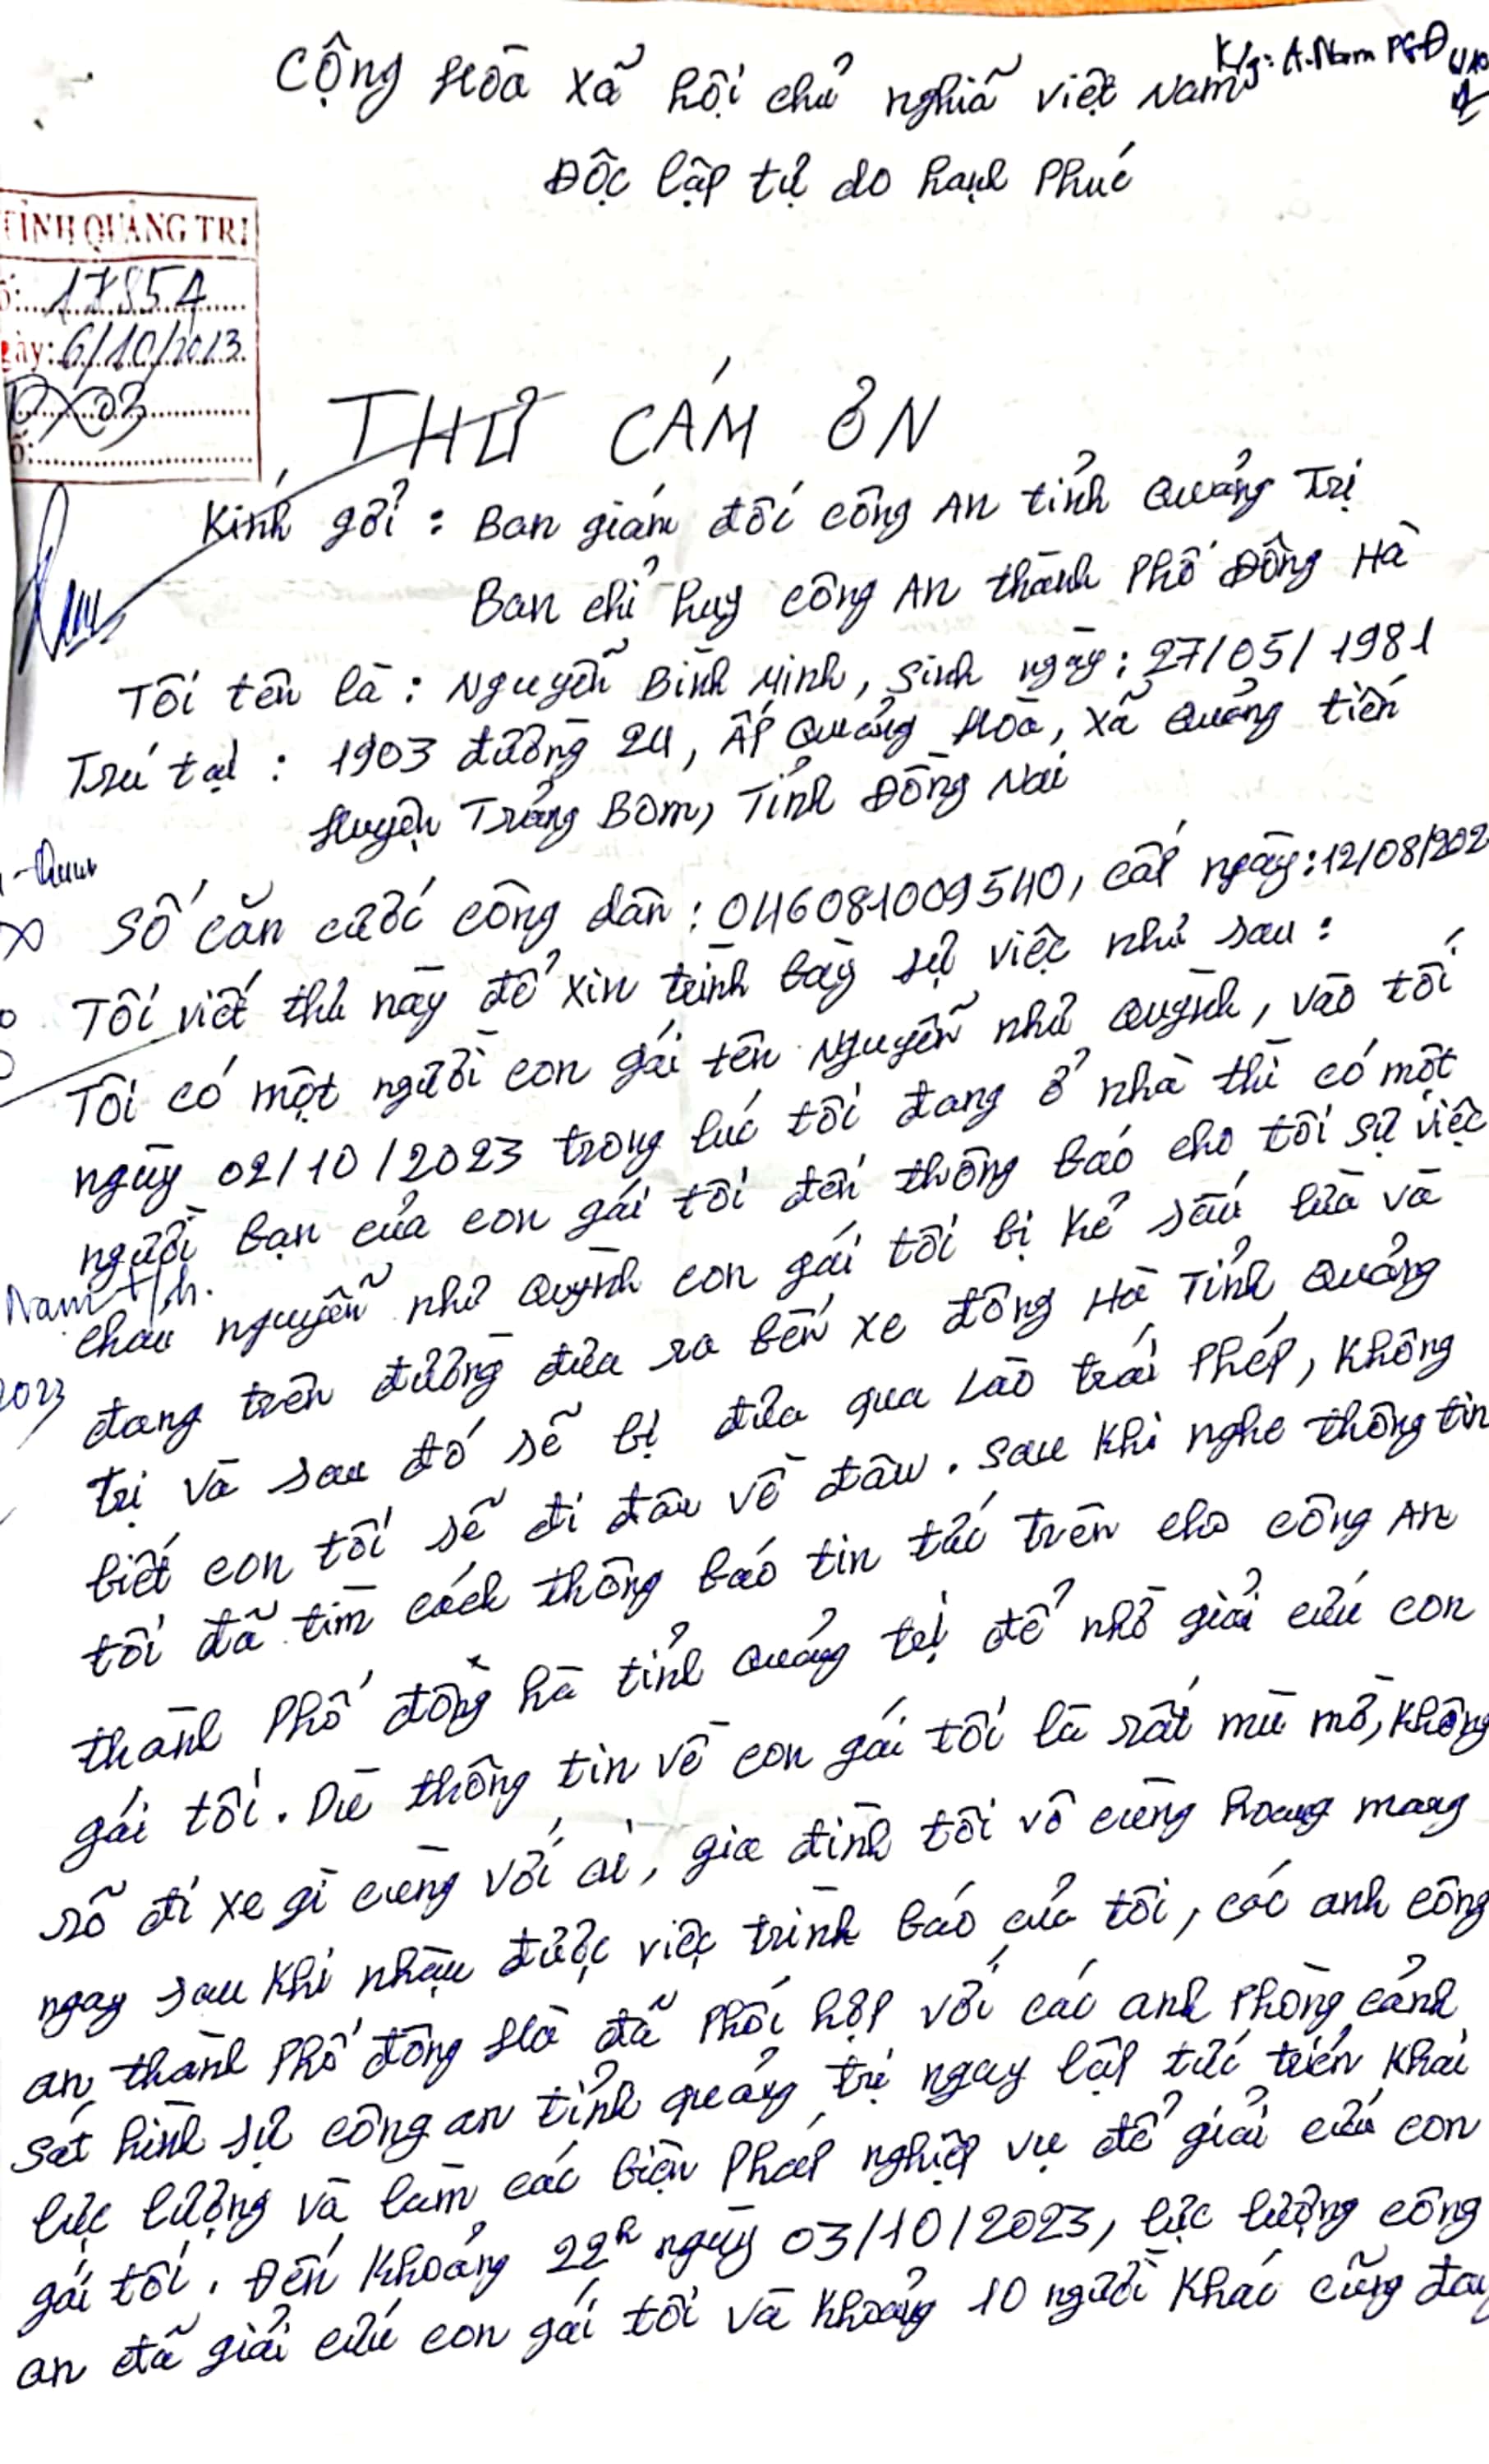 K/g: A. Nam PGĐ
Cộng Hòa xã hội chủ nghĩa việt Nam
Độc lập tự do hạnh Phúc
TỈNH QUẢNG TRỊ
17854
ày: 6/10/2023
PX03
THƯ CÁM ƠN
Kính gởi : Ban giám đốc công An tỉnh Quảng Trị
Ban chỉ huy công An thành Phố Đông Hà
Tôi tên là : Nguyễn Bình Minh, Sinh ngày : 27/05/1981
Trú tại : 1903 đường 24, Ấp Quảng Hòa, xã Quảng tiến
Huyện Trảng Bom, Tỉnh Đồng Nai
Số căn cước công dân : 046081009540, cấp ngày : 12/08/202
Tôi viết thư này để xin trình bày sự việc như sau :
Tôi có một người con gái tên Nguyễn như Quỳnh, vào tối
ngày 02/10/2023 trong lúc tôi đang ở nhà thì có một
người bạn của con gái tôi đến thông báo cho tôi sự việc
Nam
cháu nguyễn như Quỳnh con gái tôi bị kẻ xấu lừa và
đang trên đường đưa ra bến xe đông Hà Tỉnh Quảng
2023
trị và sau đó sẽ bị đưa qua Lào trái Phép, Không
biết con tôi sẽ đi đâu về đâu. Sau Khi nghe thông tin
tôi đã tìm cách thông báo tin tức trên cho công An
thành Phố đông hà tỉnh Quảng trị để nhờ giải cứu con
gái tôi. Dù thông tin về con gái tôi là rất mù mờ, Không
rõ đi xe gì cùng với ai, gia đình tôi vô cùng hoang mang
ngay sau Khi nhận được việc trình báo của tôi, các anh công
an thành Phố đông Hà đã Phối hợp với các anh Phòng cảnh
sát hình sự công an tỉnh quảng trị ngay lập tức triển Khai
lực lượng và làm các biện Pháp nghiệp vụ để giải cứu con
gái tôi. Đến Khoảng 22h ngày 03/10/2023, lực lượng công
an đã giải cứu con gái tôi và Khoảng 10 người Khác cũng đang